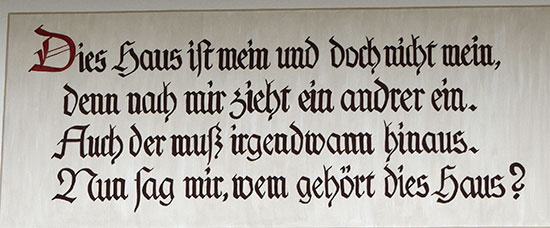 Dies Haus ist mein und doch nicht mein,
denn nach mir zieht ein andrer ein.
Auch der muß irgendwann hinaus.
Nun sag mir, wem gehört dies Haus?